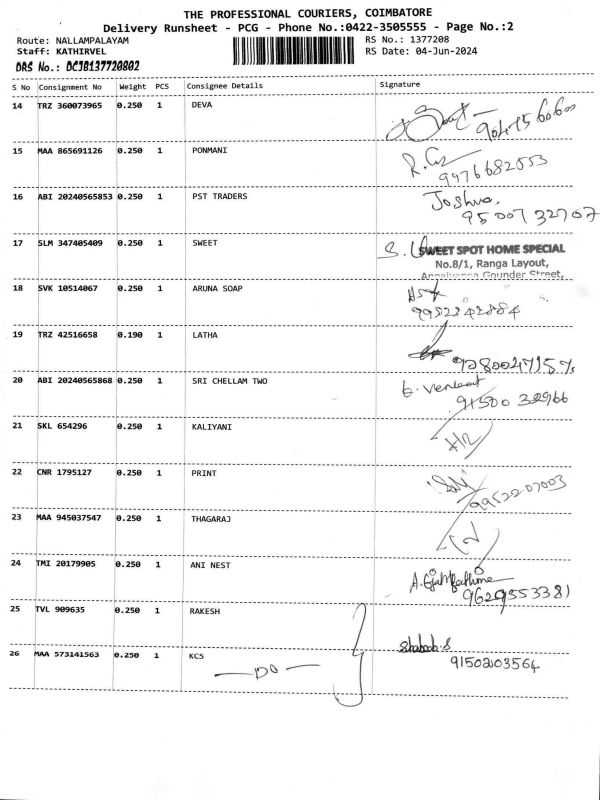 THE PROFESSIONAL COURIERS, COIMBATORE
Delivery Runsheet - PCG - Phone No.:0422-3505555 - Page No.:2
Route: NALLAMPALAYAM RS No.: 1377208
Staff: KATHIRVEL RS Date: 04-Jun-2024
DRS No.: DCJB137720802
S No Consignment No Weight PCS Consignee Details Signature
14 TRZ 360073965 0.250 1 DEVA
15 MAA 865691126 0.250 1 PONMANI
9976682553
16 ABI 20240565853 0.250 1 PST TRADERS Joshua.
95007 32707
17 SLM 347405409 0.250 1 SWEET SWEET SPOT HOME SPECIAL
No.8/1, Ranga Layout,
Gounder Street,
18 SVK 10514067 0.250 1 ARUNA SOAP
9952242884
19 TRZ 42516658 0.190 1 LATHA
20 ABI 20240565868 0.250 1 SRI CHELLAM TWO
91500 32966
21 SKL 654296 0.250 1 KALIYANI
22 CNR 1795127 0.250 1 PRINT
99522 07003
23 MAA 945037547 0.250 1 THAGARAJ
24 TMI 20179905 0.250 1 ANI NEST
9629553381
25 TVL 909635 0.250 1 RAKESH
26 MAA 573141563 0.250 1 KCS Shabab.S
—DO— 9150203564